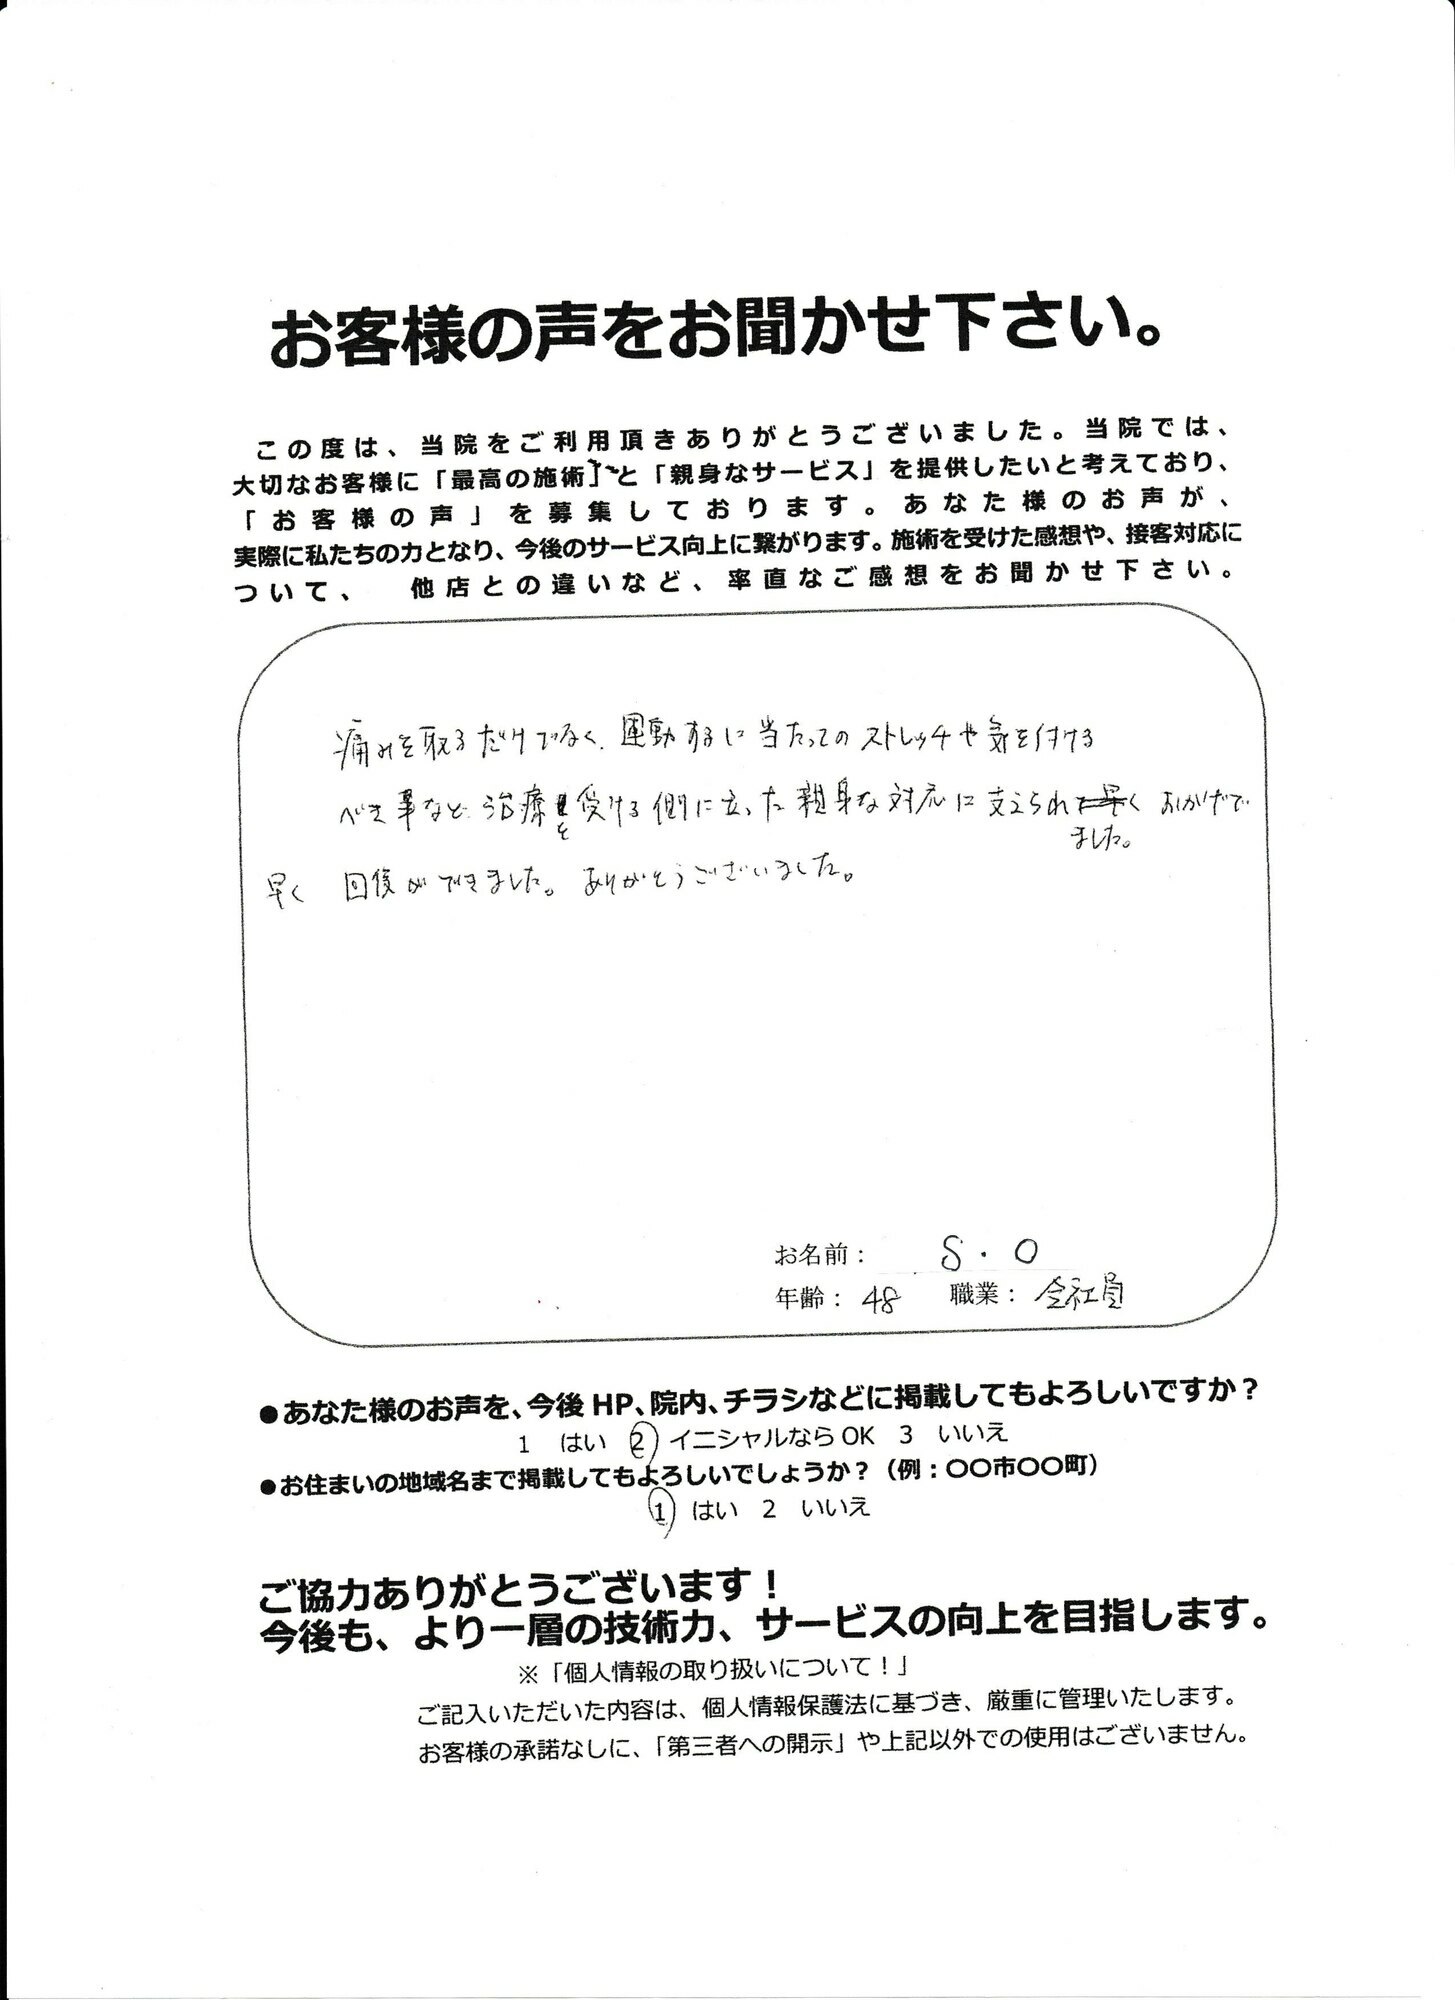 お客様の声をお聞かせ下さい。
この度は、当院をご利用頂きありがとうございました。当院では、
大切なお客様に「最高の施術」と「親身なサービス」を提供したいと考えており、
「お客様の声」を募集しております。あなた様のお声が、
実際に私たちの力となり、今後のサービス向上に繋がります。施術を受けた感想や、接客対応に
ついて、　他店との違いなど、率直なご感想をお聞かせ下さい。
痛みを取るだけでなく、運動するに当たってのストレッチや気を付ける
べき事など、治療を受ける側に立った親身な対応に支えられました。おかげで
早く 回復ができました。ありがとうございました。
お名前： S.O
年齢： 48 職業： 会社員
●あなた様のお声を、今後 HP、院内、チラシなどに掲載してもよろしいですか？
1 はい 2 イニシャルなら OK 3 いいえ
●お住まいの地域名まで掲載してもよろしいでしょうか？（例：〇〇市〇〇町）
1 はい 2 いいえ
ご協力ありがとうございます！
今後も、より一層の技術力、サービスの向上を目指します。
※「個人情報の取り扱いについて！」
ご記入いただいた内容は、個人情報保護法に基づき、厳重に管理いたします。
お客様の承諾なしに、「第三者への開示」や上記以外での使用はございません。